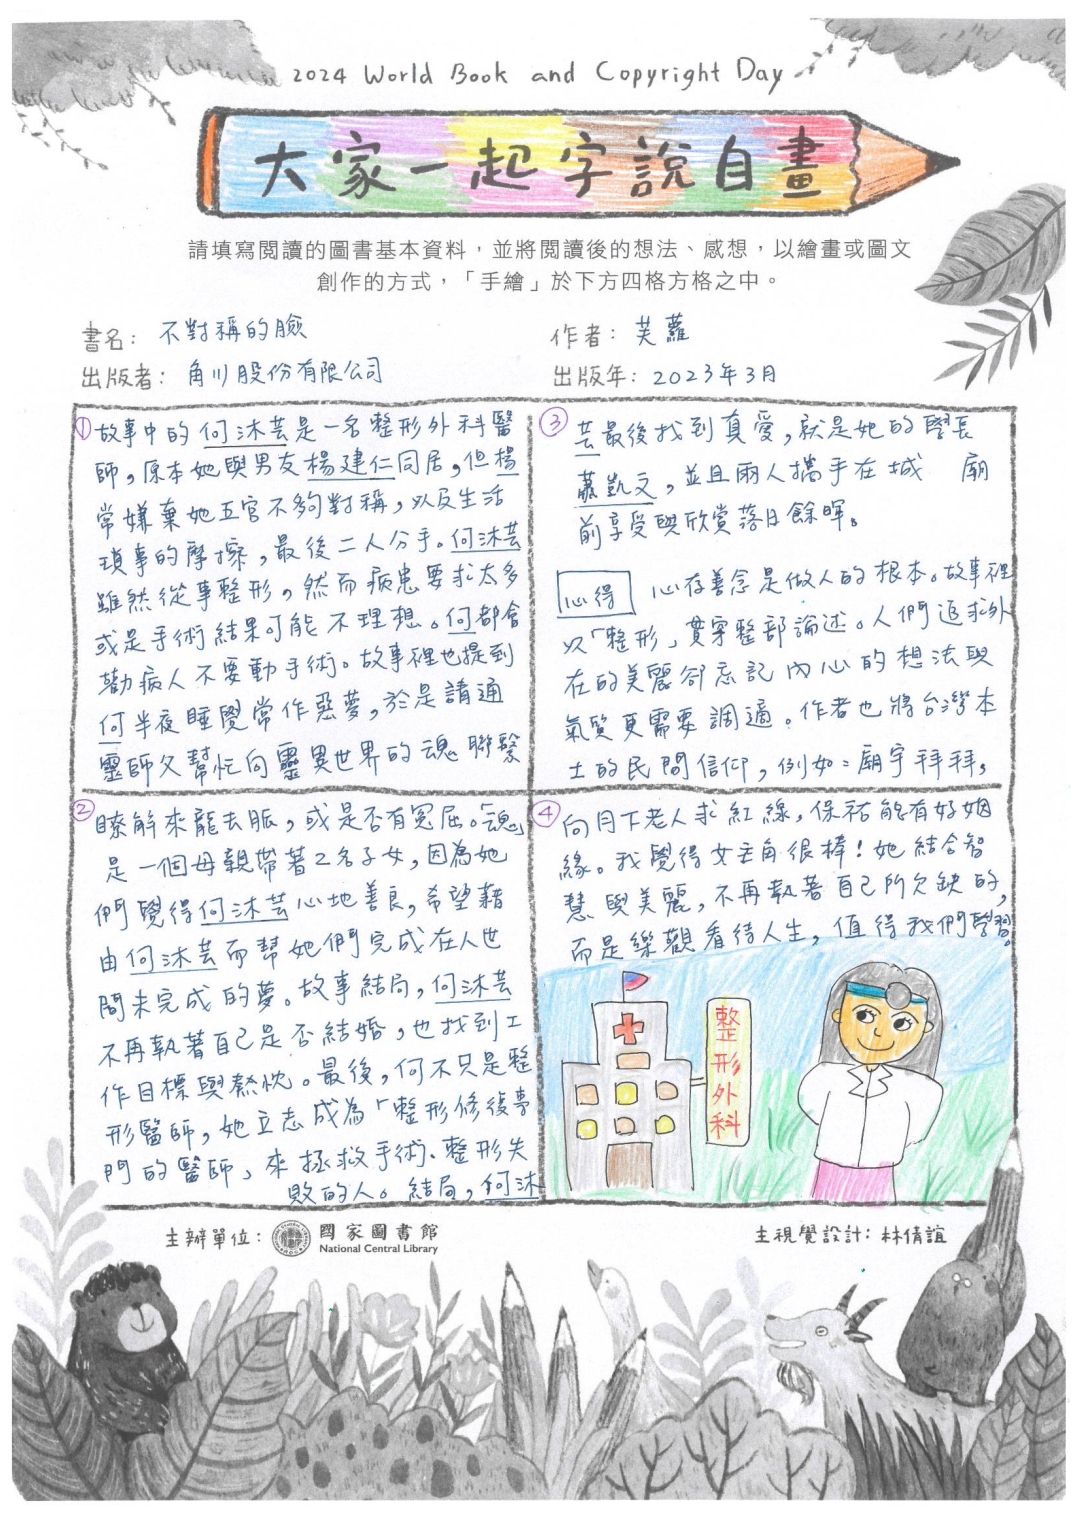 2024 World Book and Copyright Day
大家一起字說自畫
請填寫閱讀的圖書基本資料，並將閱讀後的想法、感想，以繪畫或圖文
創作的方式，「手繪」於下方四格方格之中。
書名：不對稱的臉
作者：芙蘿
出版者：角川股份有限公司
出版年：2023年3月
① 故事中的何沐芸是一名整形外科醫
師，原本她與男友楊建仁同居，但楊
常嫌棄她五官不夠對稱，以及生活
瑣事的摩擦，最後二人分手。何沐芸
雖然從事整形，然而病患要求太多
或是手術結果可能不理想。何都會
勸病人不要動手術。故事裡也提到
何半夜睡覺常作惡夢，於是請通
靈師父幫忙向靈異世界的魂聯繫
② 瞭解來龍去脈，或是否有冤屈。「魂」
是一個母親帶著2名子女，因為她
們覺得何沐芸心地善良，希望藉
由何沐芸而幫她們完成在人世
間未完成的夢。故事結局，何沐芸
不再執著自己是否結婚，也找到工
作目標與熱忱。最後，何不只是整
形醫師，她立志成為「整形修復專
門的醫師」來拯救手術、整形失
敗的人。結局，何沐
③ 芸最後找到真愛，就是她的學長
蕭凱文，並且兩人攜手在城 廟
前享受與欣賞落日餘暉。
心得 心存善念是做人的根本。故事裡
以「整形」貫穿整部論述。人們追求外
在的美麗卻忘記內心的想法與
氣質更需要調適。作者也將台灣本
土的民間信仰，例如：廟宇拜拜，
④ 向月下老人求紅線，保祐能有好姻
緣。我覺得女主角很棒！她結合智
慧與美麗，不再執著自己所欠缺的，
而是樂觀看待人生，值得我們學習。
整形外科
主辦單位：國家圖書館
National Central Library
主視覺設計：林倩誼